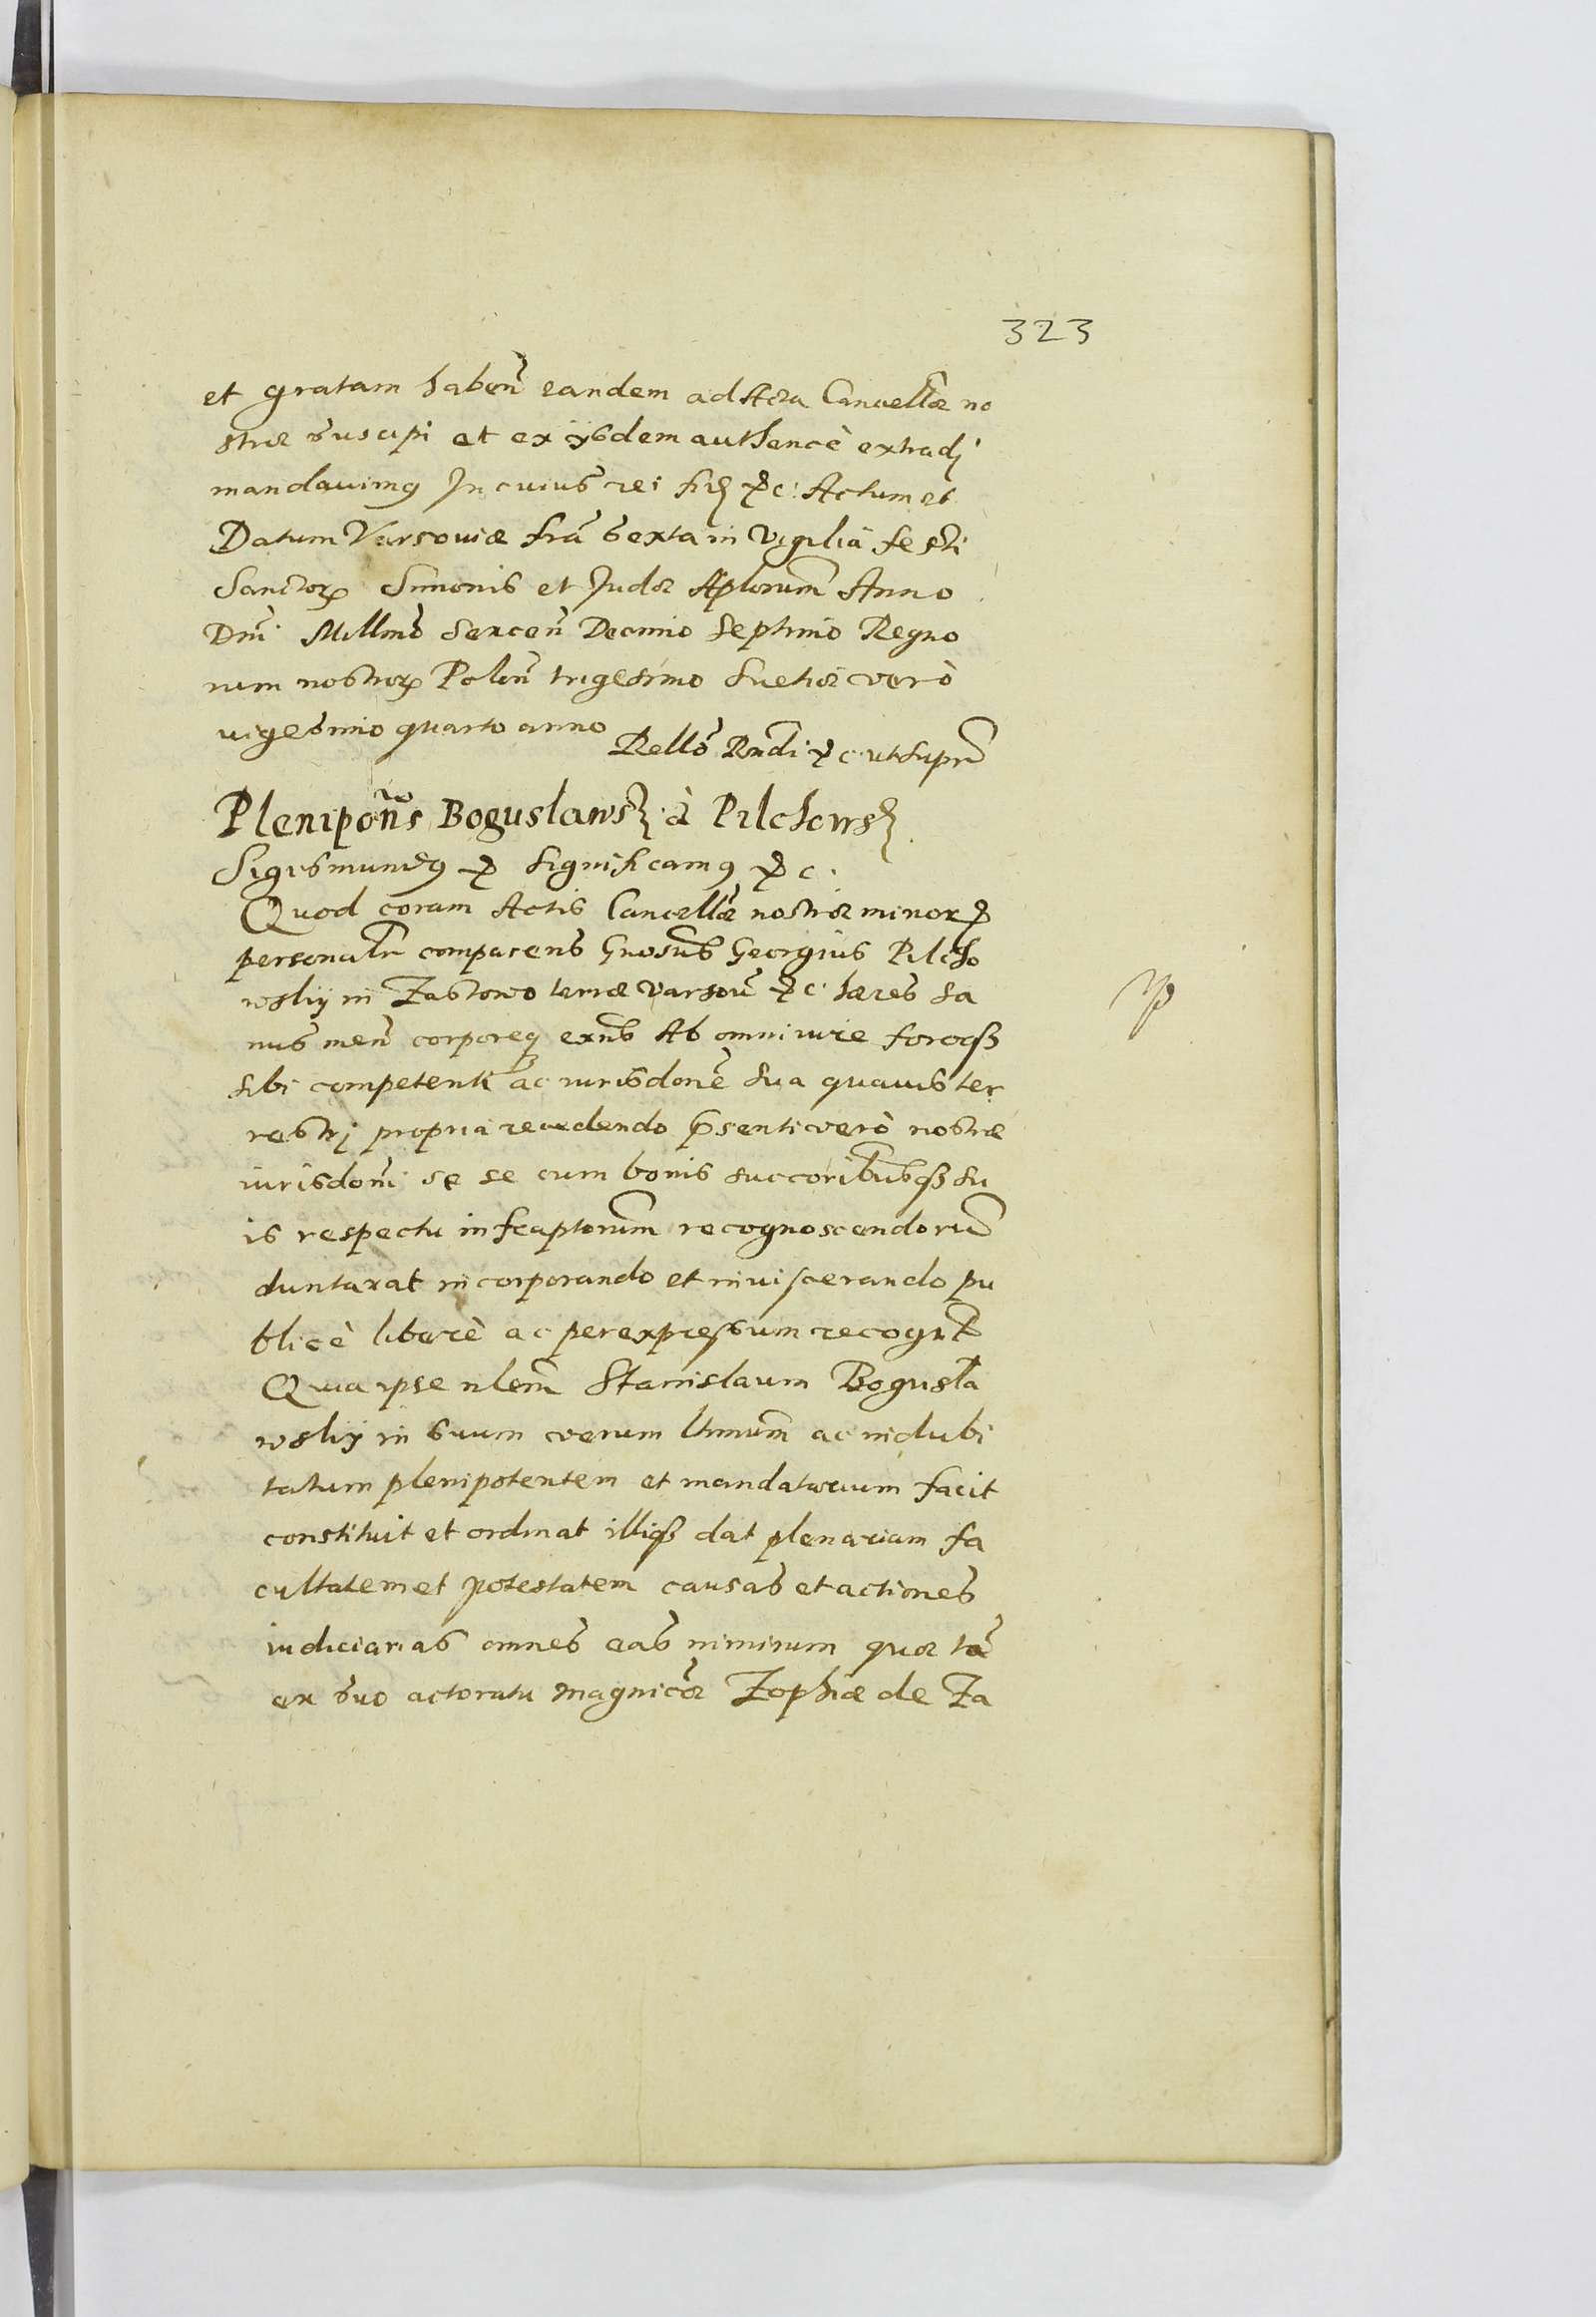 323
et gratam haben̄ eandem ad Acta Cancellæ no
stræ suscipi et ex ijsdem authencè extradj
mandavimꝰ In cuius rei fid ꝛc: Actum et
Datum Varsoviæ fria sexta in Vigilia festi
Sanctorꝝ Simonis et Judæ Aplorum Anno
Dni Millmo Sexcen Decimo Septimo Regno
rum nostrorꝝ Polon trigesimo Suetiæ verò
vigesimo quarto anno
Rello Rndi ꝛc ut supra
Plenipons Boguslaws à Pilchows
Sigismundꝰ ꝛc significamꝰ ꝛc.
Quod coram Actis Cancellæ nostræ minor ꝛc
personalr comparens Gnosus Georgius Pilcho
wskij in Zastowo terræ Varsov ꝛc hæres sa
nus men corporeq exns Ab omni iure foroqꝫ
sibi competenti ac iurisdone sua quavis ter
restrj propria recedendo p̄senti verò nostræ
iurisdoni se se cum bonis succoribusqꝫ su
is respectu infraptorum recognoscendorum
duntaxat incorporando et inviscerando pu
blicè liberè ac per expressum recogt
Quia ipse nlem Stanislaum Bogusla
wskij in suum verum ltimum ac indubi
tatum plenipotentem et mandatarium facit
constituit et ordinat illiqꝫ dat plenariam fa
cultatem et potestatem causas et actiones
iudiciarias omnes eas nimirum quæ tā
ex suo actoratu Magnicæ Zophiæ de Za